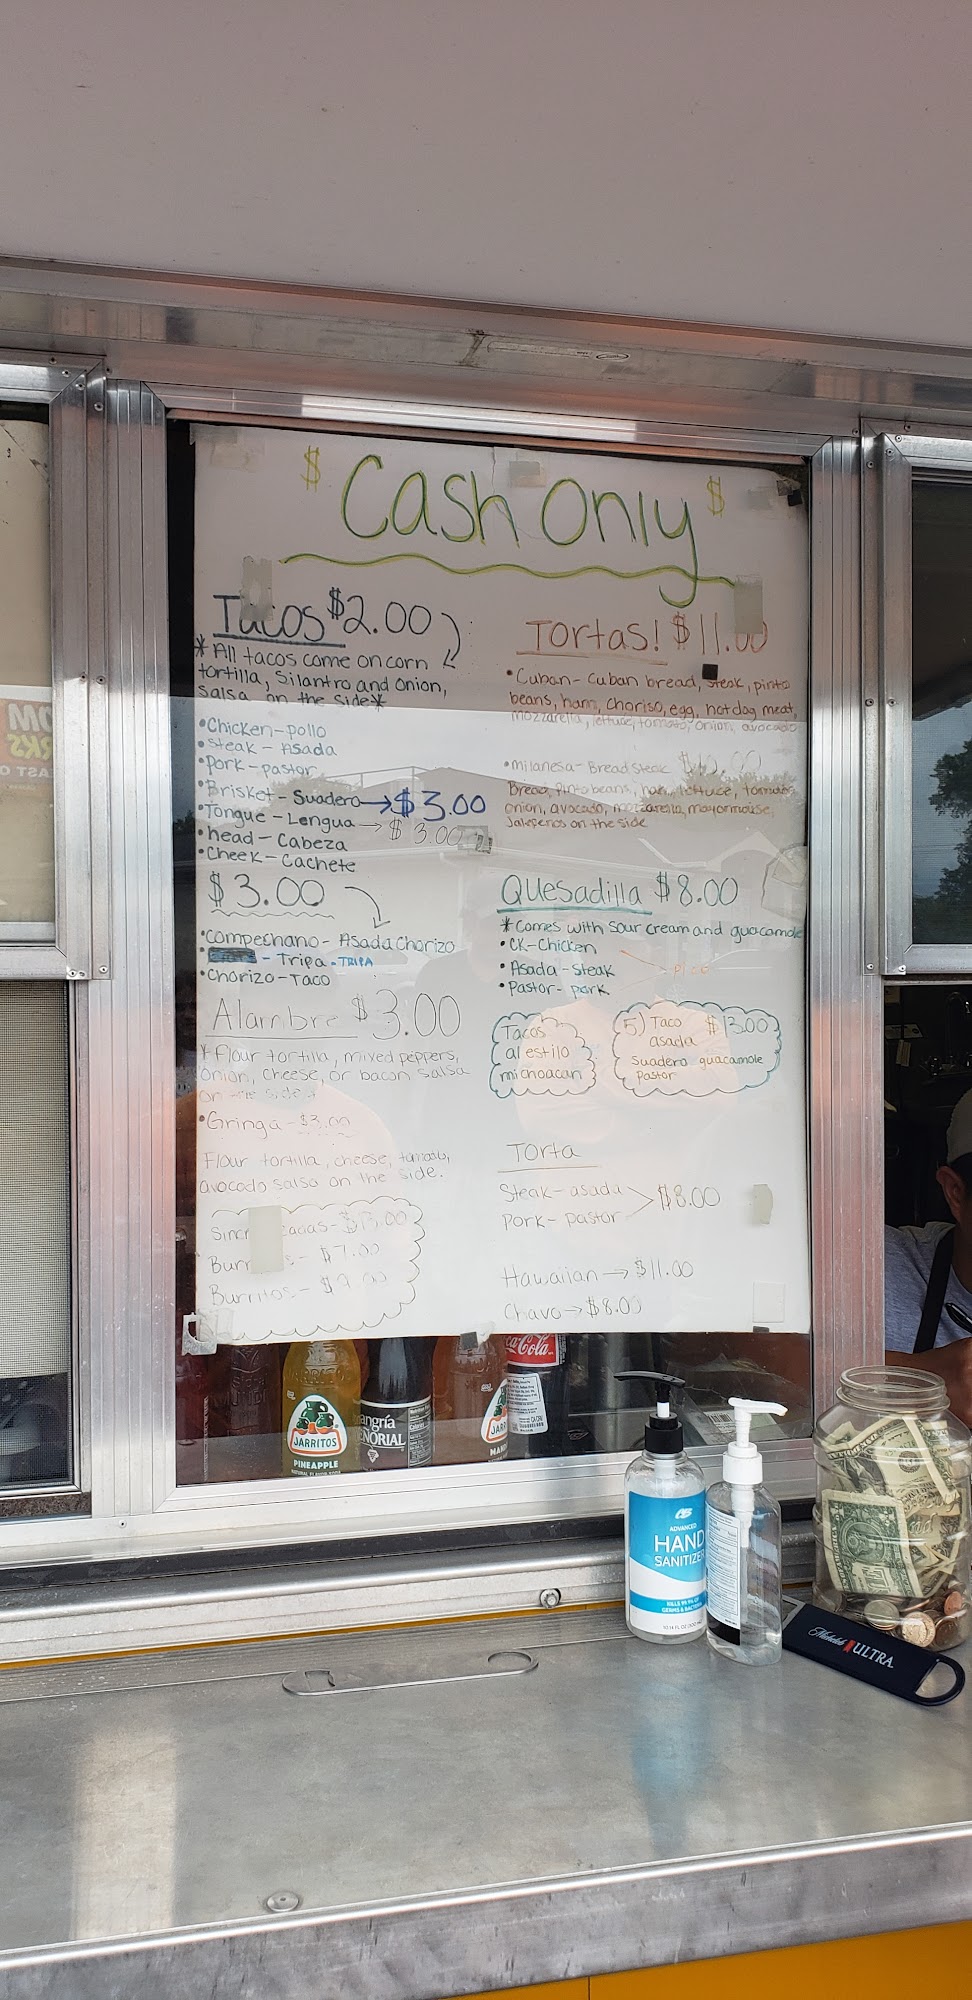 $ Cash Only $
Tacos $2.00
*All tacos come on corn
tortilla, Silantro and Onion,
Salsa on the side*
•Chicken-pollo
•Steak-Asada
•Pork-pastor
•Brisket-Suadero→$3.00
•Tongue-Lengua→$3.00
•head-Cabeza
•Cheek-Cachete
$3.00
•Compechano-Asada Chorizo
-Tripa-TRIPA
•Chorizo-Taco
Alambre $3.00
*Flour tortilla, mixed peppers,
Onion, cheese, or bacon salsa
on the side*
•Gringa-$3.00
Flour tortilla, cheese, tomato,
avocado salsa on the side.
Burritos-
Tortas! $11.00
•Cuban-Cuban bread, Steak, pinto
beans, ham, choriso, egg, hotdog meat,
mozzarella, lettuce, tomato, onion, avocado
•milanesa-Bread Steak
Bread, Pinto beans, ham, lettuce, tomato,
onion, avocado, mozzarella, mayormouse,
Jalepenos on the side
Quesadilla $8.00
*Comes with Sour cream and guacamole
•CK-Chicken
•Asada-Steak
•Pastor-pork
Tacos
al estilo
michoacan
5) Taco $13.00
asada
Suadero guacamole
Pastor
Torta
Steak-asada
Pork-pastor $8.00
Hawaiian→$11.00
Chavo→$8.00
JARRITOS
PINEAPPLE
angría
ENORIAL
ca-Cola
JARR
MAN
ADVANCED
HAND
SANITIZER
KILLS 99.9% OF
GERMS & BACTERIA
Michelob ULTRA